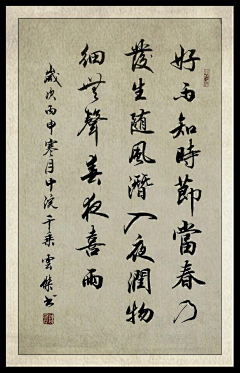 好雨知時節當春乃
發生随風潛入夜潤物
細無聲春夜喜雨
歲次丙申寒月中浣千乘雲傑書